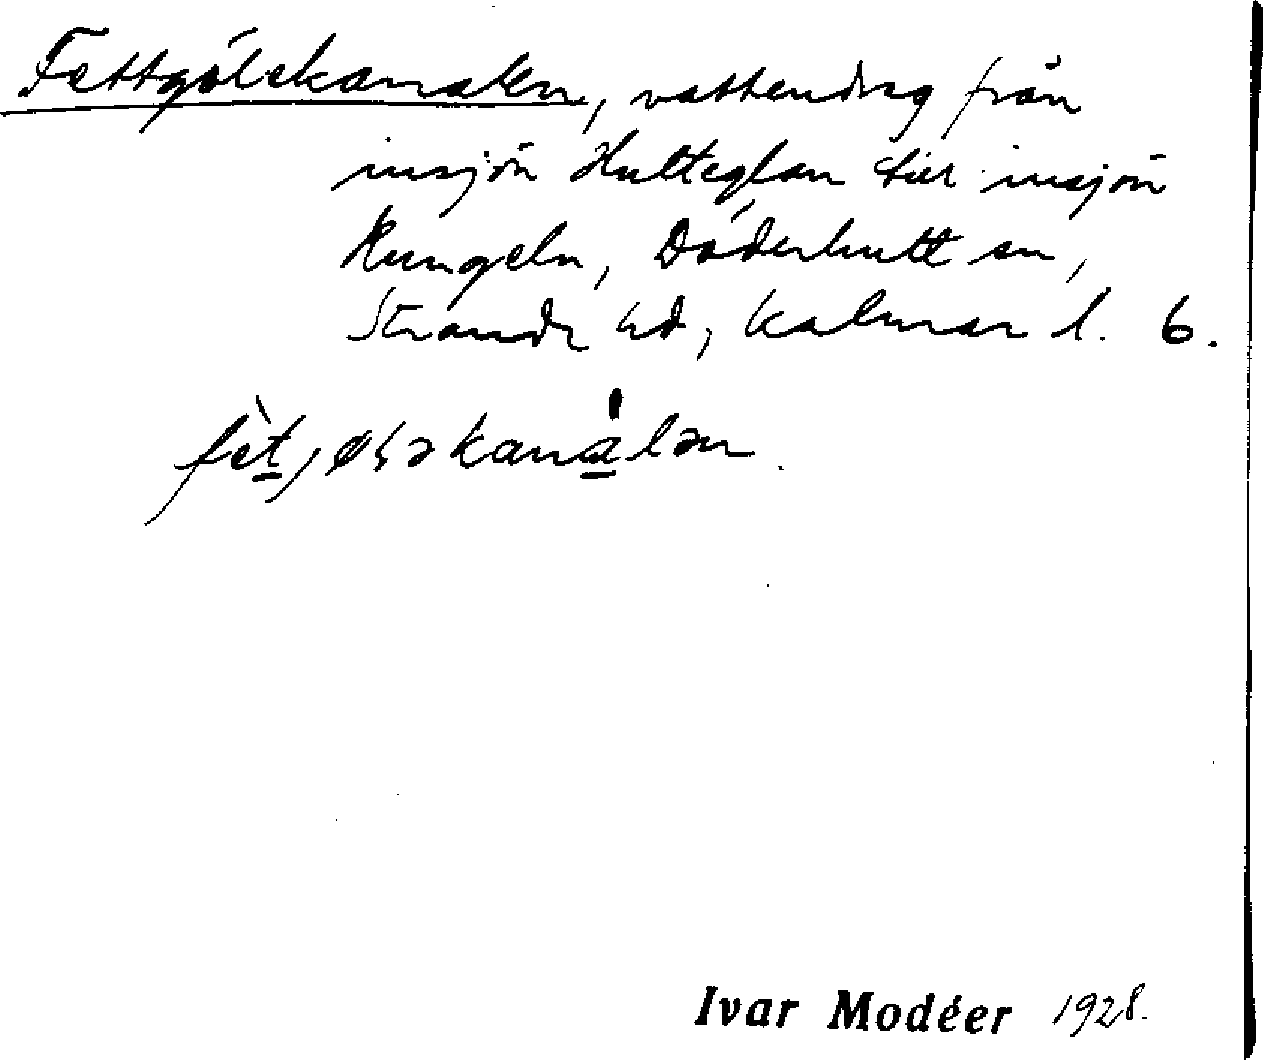 Fettgölekanalen, vattendrag från
insjön Hulteglan till insjön
Rungeln, Döderhultt sn,
Stranda hd, Kalmar l. 6.
fèt, øləkanalən.
Ivar Modéer 1928.